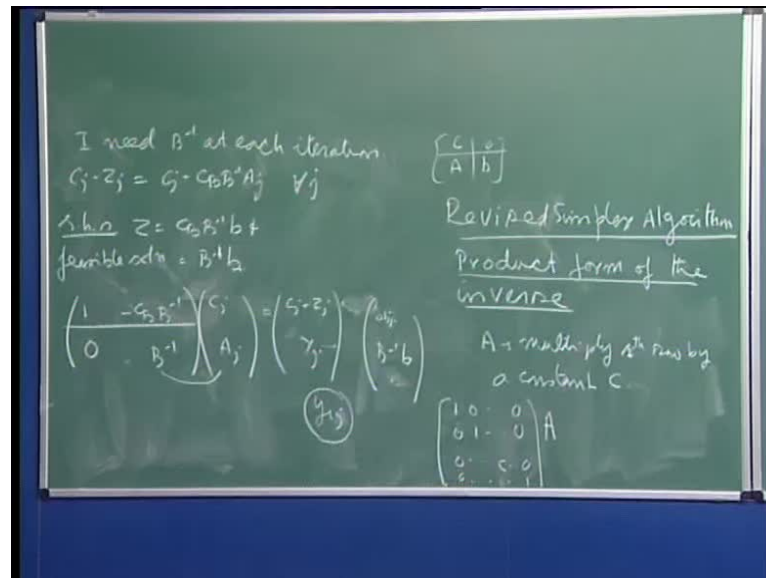 I need B⁻¹ at each iteration
Cj - Zj = Cj - CB B⁻¹ Aj ∀j
r.h.s Z = CB B⁻¹ b +
feasible soln = B⁻¹ b
( 1 -CB B⁻¹ ) ( Cj ) = ( Cj - Zj ) ( obj. )
( 0 B⁻¹ ) ( Aj ) ( Yj ) ( B⁻¹ b )
yij
[ C | 0 ]
[ A | b ]
Revised Simplex Algorithm
Product form of the
inverse
A → multiply rth row by
a constant C.
( 1 0 · 0 )
( 0 1 - 0 ) A
( 0 · · c · 0 )
( 0 · · · 1 )